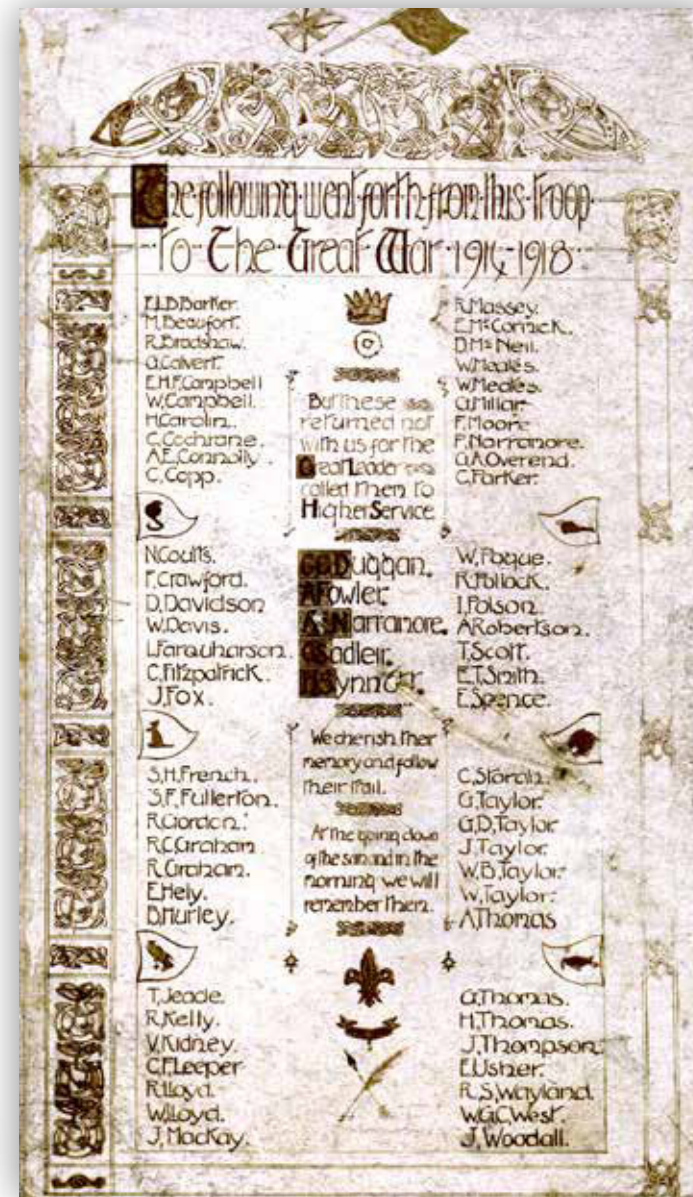 The following went forth from this Troop
to The Great War 1914-1918
F.L.B.Barker.
M.Beaufort.
R.Bradshaw.
G.Calvert.
E.H.F.Campbell
W.Campbell.
H.Carolin.
C.Cochrane.
A.E.Connolly.
C.Copp.
N.Coults.
F.Crawford.
D.Davidson
W.Davis.
L.Farquharson.
C.Fitzpatrick.
J.Fox.
S.H.French.
S.F.Fullerton.
R.Gordon.
R.C.Graham.
R.Graham.
E.Hely.
B.Hurley.
T.Jeade.
R.Kelly.
V.Kidney
C.F.Leeper
R.Lloyd.
W.Lloyd.
J.MacKay.
But these
returned not
with us for the
Great Leader
called them to
Higher Service
Duggan.
A Fowler.
A.Narramore.
Sadleir.
Synnott.
We cherish their
memory and follow
their trail.
At the going down
of the sun and in the
morning we will
remember them.
R.Massey.
E.McCormick.
D.McNeil.
W.Meales.
W.Meales.
G.Millar
F.Moore
P.Narramore.
G.A.Overend.
C.Parker.
W.Pogue.
R.Pollock.
I.Polson.
A.Robertson.
T.Scott.
E.T.Smith.
E.Spence.
C.Storah.
G.Taylor.
G.D.Taylor
J.Taylor.
W.B.Taylor.
W.Taylor.
A.Thomas
G.Thomas.
H.Thomas.
J.Thompson.
E.Usher.
R.S.Wayland.
W.G.C.West.
J.Woodall.